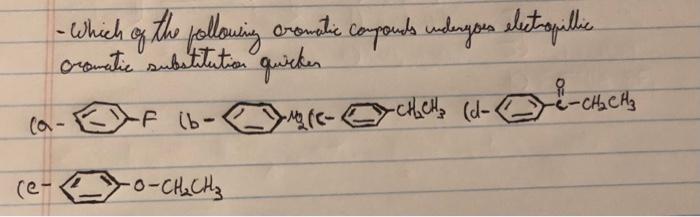 - Which of the following aromatic compounds undergoes electrophillic
aromatic substitution quicker
(a- F (b- NO2 (c- CH2CH3 (d- C-CH2CH3
O
(e- O-CH2CH3